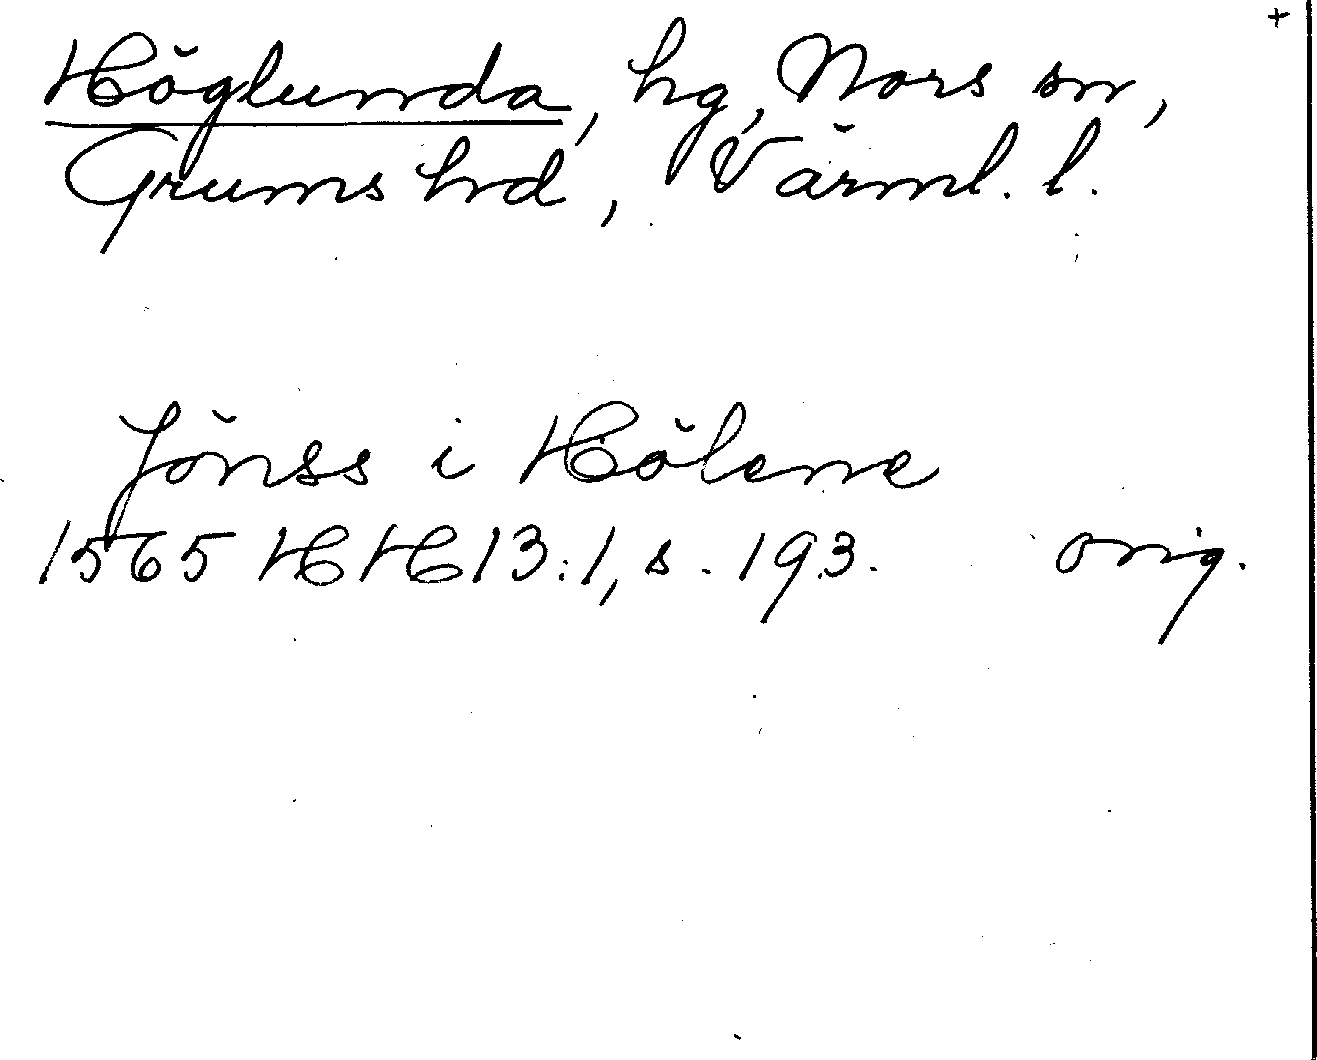 +
Höglunda, hg, Nors sn,
Grums hd, Värml. l.
Jönss i Hölene
1565 HH13:1, s. 193. orig.